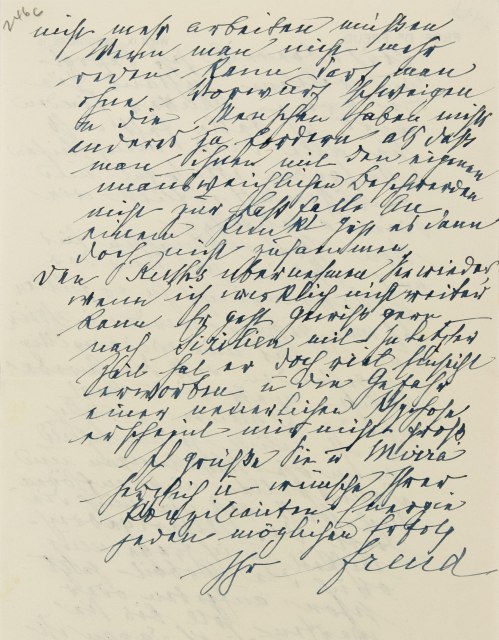 246c
nicht mehr arbeiten müßen
Wenn man nicht mehr
reden kann darf man
ohne Vorwurf schweigen
u die Menschen haben nichts
anderes zu fordern als daß
man ihnen mit den eigenen
unausweichlichen Beschwerden
nicht zur Last falle An
einem Punkt geht es dann
doch nicht zusammen
den Rest übernehmen Sie wieder,
wenn ich wirklich nicht weiter
kann Er geht gewiß gern
nach Sizilien mit In letzter
Zeit hat er doch viel Einsicht
erworben u die Gefahr
einer neuerlichen Psychose
erscheint mir nicht groß.
Ich grüße Sie u Mirra
herzlich u wünsche Ihrer
konzilianten Energie
jeden möglichen Erfolg
Ihr Freud